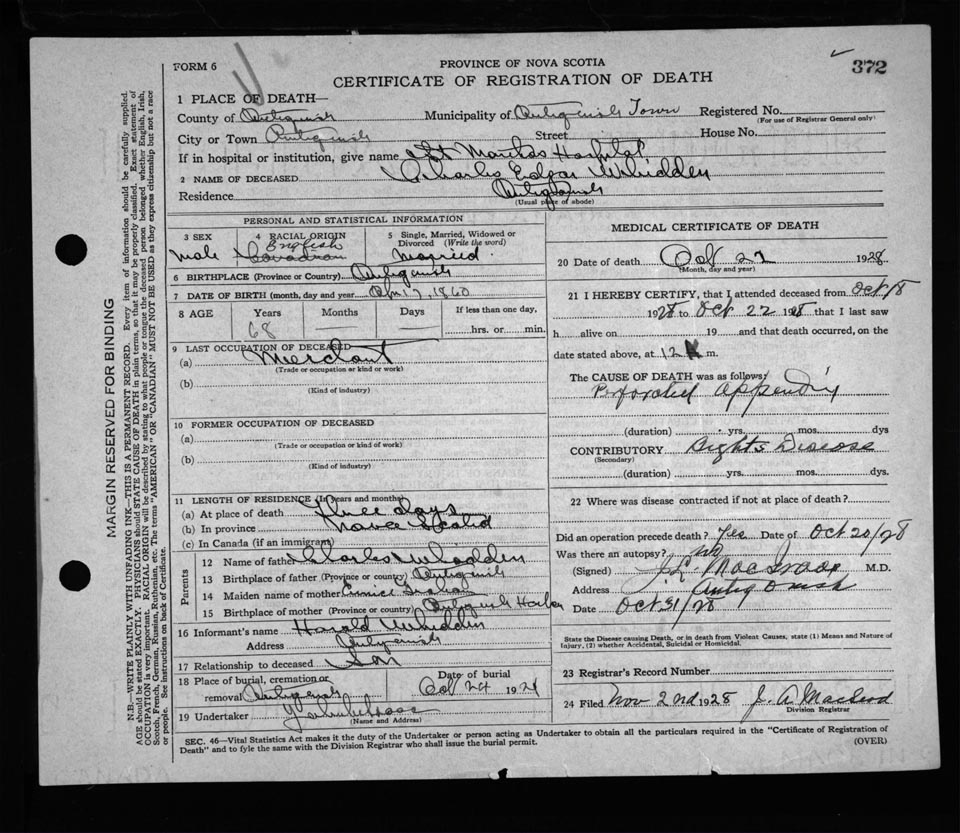 372
FORM 6
PROVINCE OF NOVA SCOTIA
CERTIFICATE OF REGISTRATION OF DEATH
1 PLACE OF DEATH—
County of Antigonish Municipality of Antigonish Town Registered No.
(For use of Registrar General only)
City or Town Antigonish Street House No.
If in hospital or institution, give name St Marthas Hospital
2 NAME OF DECEASED Charles Edgar Whidden
Residence Antigonish
(Usual place of abode)
PERSONAL AND STATISTICAL INFORMATION
3 SEX 4 RACIAL ORIGIN 5 Single, Married, Widowed or Divorced (Write the word)
Male English Canadian Married
6 BIRTHPLACE (Province or Country) Antigonish
7 DATE OF BIRTH (month, day and year) 1860
8 AGE Years Months Days If less than one day,
68 hrs. or min.
9 LAST OCCUPATION OF DECEASED
(a) Merchant
(Trade or occupation or kind or work)
(b)
(Kind of industry)
10 FORMER OCCUPATION OF DECEASED
(a)
(Trade or occupation or kind of work)
(b)
(Kind of industry)
11 LENGTH OF RESIDENCE (In years and months)
(a) At place of death Three days
(b) In province
(c) In Canada (if an immigrant)
Parents
12 Name of father Charles Whidden
13 Birthplace of father (Province or country) Antigonish
14 Maiden name of mother
15 Birthplace of mother (Province or country) Antigonish
16 Informant's name Harold Whidden
Address Antigonish
17 Relationship to deceased Son
18 Place of burial, cremation or removal Antigonish Date of burial Oct 24 192
19 Undertaker
(Name and Address)
MEDICAL CERTIFICATE OF DEATH
20 Date of death Oct 22 1928
(Month, day and year)
21 I HEREBY CERTIFY, that I attended deceased from Oct 18
1928 to Oct 22 1928 that I last saw
h alive on 19 and that death occurred, on the
date stated above, at 12 m.
The CAUSE OF DEATH was as follows:
Perforated Appendix
(duration) yrs. mos. dys
CONTRIBUTORY Brights Disease
(Secondary)
(duration) yrs. mos. dys.
22 Where was disease contracted if not at place of death?
Did an operation precede death? Yes Date of Oct 20/28
Was there an autopsy? No
(Signed) M.D.
Address Antigonish
Date Oct 31/28
State the Disease causing Death, or in death from Violent Causes, state (1) Means and Nature of
Injury, (2) whether Accidental, Suicidal or Homicidal.
23 Registrar's Record Number
24 Filed Nov 2nd 1928 J. A. Macleod
Division Registrar
SEC. 46—Vital Statistics Act makes it the duty of the Undertaker or person acting as Undertaker to obtain all the particulars required in the "Certificate of Registration of
Death" and to fyle the same with the Division Registrar who shall issue the burial permit. (OVER)
MARGIN RESERVED FOR BINDING
N.B.—WRITE PLAINLY WITH UNFADING INK—THIS IS A PERMANENT RECORD. Every item of information should be carefully supplied.
AGE should be stated EXACTLY. PHYSICIANS should STATE CAUSE OF DEATH in plain terms, so that it may be properly classified. Exact statement of
OCCUPATION is very important. RACIAL ORIGIN will be described by stating to what people or tongue the deceased person belonged whether English, Irish,
Scotch, French, German, Russian, Ruthenian, etc. The terms "AMERICAN" OR "CANADIAN" MUST NOT BE USED as they express citizenship but not a race
or people. See instructions on back of Certificate.